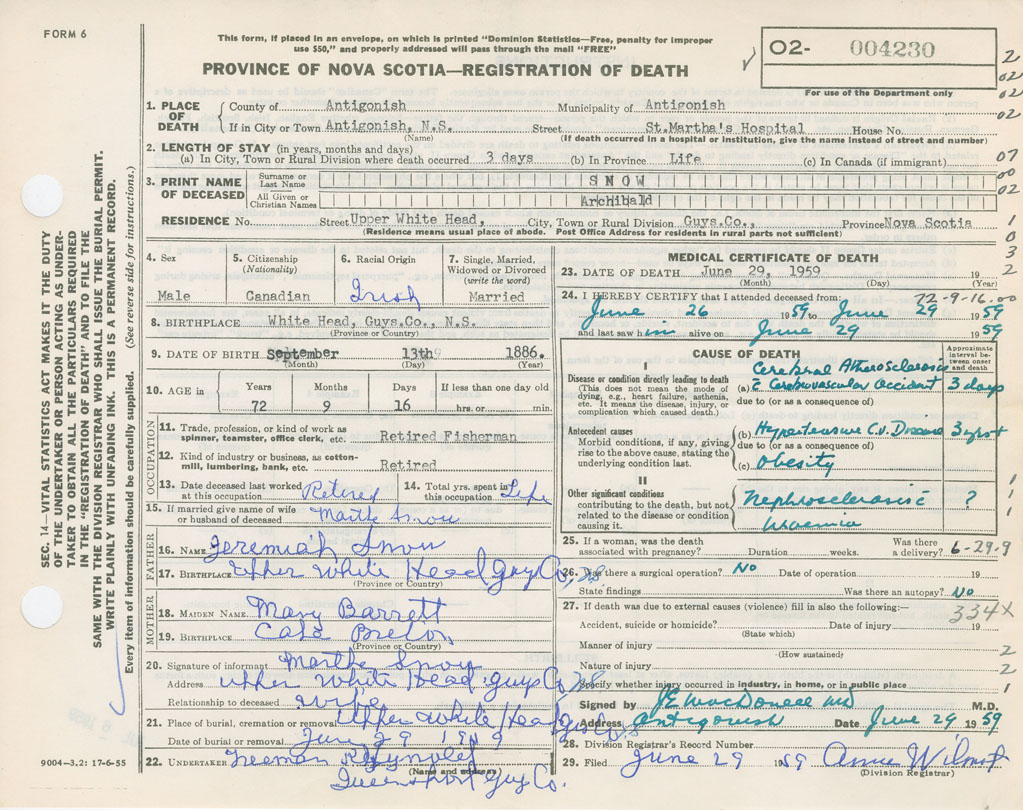 FORM 6
This form, if placed in an envelope, on which is printed "Dominion Statistics—Free, penalty for improper
use $50," and properly addressed will pass through the mail "FREE"
PROVINCE OF NOVA SCOTIA—REGISTRATION OF DEATH
02- 004230
For use of the Department only
1. PLACE OF DEATH
County of Antigonish Municipality of Antigonish
If in City or Town Antigonish, N.S. Street St.Martha's Hospital House No.
(Name) (If death occurred in a hospital or institution, give the name instead of street and number)
2. LENGTH OF STAY (in years, months and days)
(a) In City, Town or Rural Division where death occurred 3 days (b) In Province Life (c) In Canada (if immigrant)
3. PRINT NAME OF DECEASED
Surname or Last Name SNOW
All Given or Christian Names Archibald
RESIDENCE No. Street Upper White Head, City, Town or Rural Division Guys.Co., Province Nova Scotia
(Residence means usual place of abode. Post Office Address for residents in rural parts not sufficient)
4. Sex
Male
5. Citizenship (Nationality)
Canadian
6. Racial Origin
Irish
7. Single, Married, Widowed or Divorced (write the word)
Married
8. BIRTHPLACE White Head, Guys.Co., N.S.
(Province or Country)
9. DATE OF BIRTH September 13th 1886.
(Month) (Day) (Year)
10. AGE in
Years Months Days If less than one day old
72 9 16 hrs. or min.
OCCUPATION
11. Trade, profession, or kind of work as
spinner, teamster, office clerk, etc. Retired Fisherman
12. Kind of industry or business, as cotton-
mill, lumbering, bank, etc. Retired
13. Date deceased last worked
at this occupation Retired
14. Total yrs. spent in
this occupation Life
15. If married give name of wife
or husband of deceased Martha Snow
FATHER
16. NAME Jeremiah Snow
17. BIRTHPLACE Upper White Head Guy Co, N.S
(Province or Country)
MOTHER
18. MAIDEN NAME Mary Barrett
19. BIRTHPLACE Cape Breton
(Province or Country)
20. Signature of informant Martha Snow
Address Upper White Head Guys Co, N.S
Relationship to deceased Wife
21. Place of burial, cremation or removal Upper White Head
Date of burial or removal June 29 1959
22. UNDERTAKER Freeman Reynolds
(Name and address)
Queensport Guy Co.
9004-3.2: 17-6-55
MEDICAL CERTIFICATE OF DEATH
23. DATE OF DEATH June 29, 1959 19
(Month) (Day) (Year)
72-9-16.00
24. I HEREBY CERTIFY that I attended deceased from:
June 26 1959 to June 29 1959
and last saw him alive on June 29 1959
CAUSE OF DEATH
Approximate interval between onset and death
I
Cerebral Atherosclerosis
Disease or condition directly leading to death
(This does not mean the mode of
dying, e.g., heart failure, asthenia,
etc. It means the disease, injury, or
complication which caused death.)
(a) c̄ Cerebrovascular accident 3 days
due to (or as a consequence of)
Antecedent causes
Morbid conditions, if any, giving
rise to the above cause, stating the
underlying condition last.
(b) Hypertensive C.V. Disease 3 yrs+
due to (or as a consequence of)
(c) Obesity
II
Other significant conditions
contributing to the death, but not
related to the disease or condition
causing it.
Nephrosclerosis c̄ ?
Uraemia
25. If a woman, was the death
associated with pregnancy? Duration weeks. Was there
a delivery? 6-29-9
26. Was there a surgical operation? No Date of operation 19
State findings Was there an autopsy? No
27. If death was due to external causes (violence) fill in also the following:—
334X
Accident, suicide or homicide? Date of injury 19
(State which)
Manner of injury
(How sustained)
Nature of injury
Specify whether injury occurred in industry, in home, or in public place
Signed by J E MacDonell MD M.D.
Address Antigonish Date June 29 1959
28. Division Registrar's Record Number
29. Filed June 29 1959 Annie Wilmot
(Division Registrar)
2
02
02
07
00
02
1
0
3
2
1
1
1
2
2
1
SEC. 14—VITAL STATISTICS ACT MAKES IT THE DUTY
OF THE UNDERTAKER OR PERSON ACTING AS UNDER-
TAKER TO OBTAIN ALL THE PARTICULARS REQUIRED
IN THE "REGISTRATION OF DEATH" AND TO FILE THE
SAME WITH THE DIVISION REGISTRAR WHO SHALL ISSUE THE BURIAL PERMIT.
WRITE PLAINLY WITH UNFADING INK. THIS IS A PERMANENT RECORD.
Every item of information should be carefully supplied. (See reverse side for instructions.)